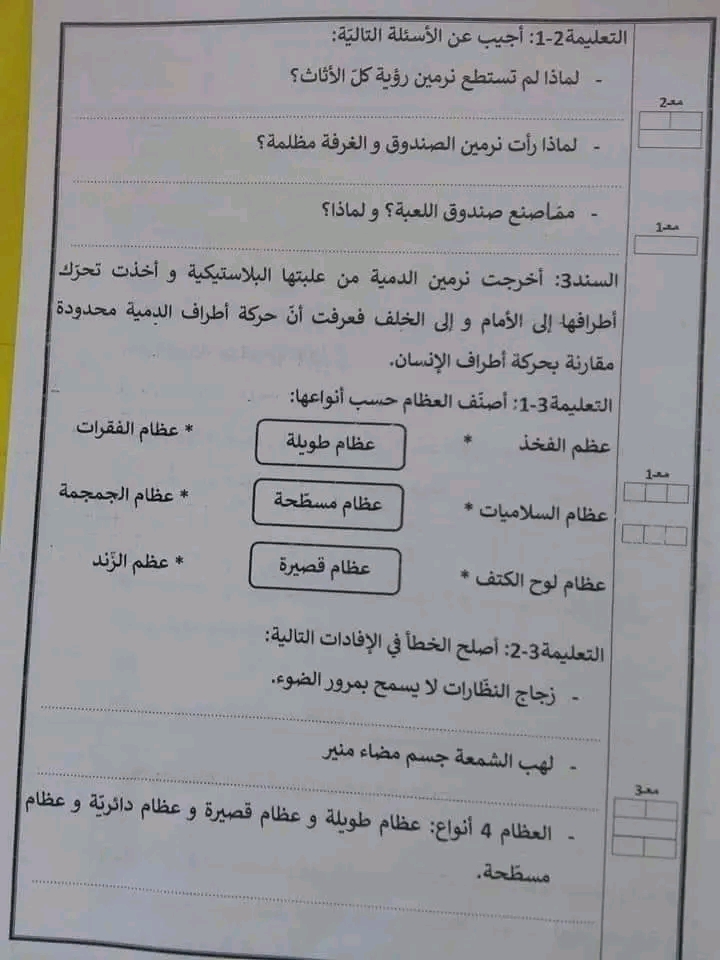 التعليمة2-1: أجيب عن الأسئلة التاليّة:
- لماذا لم تستطع نرمين رؤية كلّ الأثاث؟
مع2
- لماذا رأت نرمين الصندوق و الغرفة مظلمة؟
- ممّاصنع صندوق اللعبة؟ و لماذا؟
مع1
السند3: أخرجت نرمين الدمية من علبتها البلاستيكية و أخذت تحرّك
أطرافها إلى الأمام و إلى الخلف فعرفت أنّ حركة أطراف الدمية محدودة
مقارنة بحركة أطراف الإنسان.
التعليمة3-1: أصنّف العظام حسب أنواعها:
عظم الفخذ * عظام طويلة * عظام الفقرات
مع1
عظام السلاميات * عظام مسطّحة * عظام الجمجمة
عظام لوح الكتف * عظام قصيرة * عظم الزّند
التعليمة3-2: أصلح الخطأ في الإفادات التالية:
- زجاج النظّارات لا يسمح بمرور الضوء.
- لهب الشمعة جسم مضاء منير
مع3
- العظام 4 أنواع: عظام طويلة و عظام قصيرة و عظام دائريّة و عظام
مسطّحة.